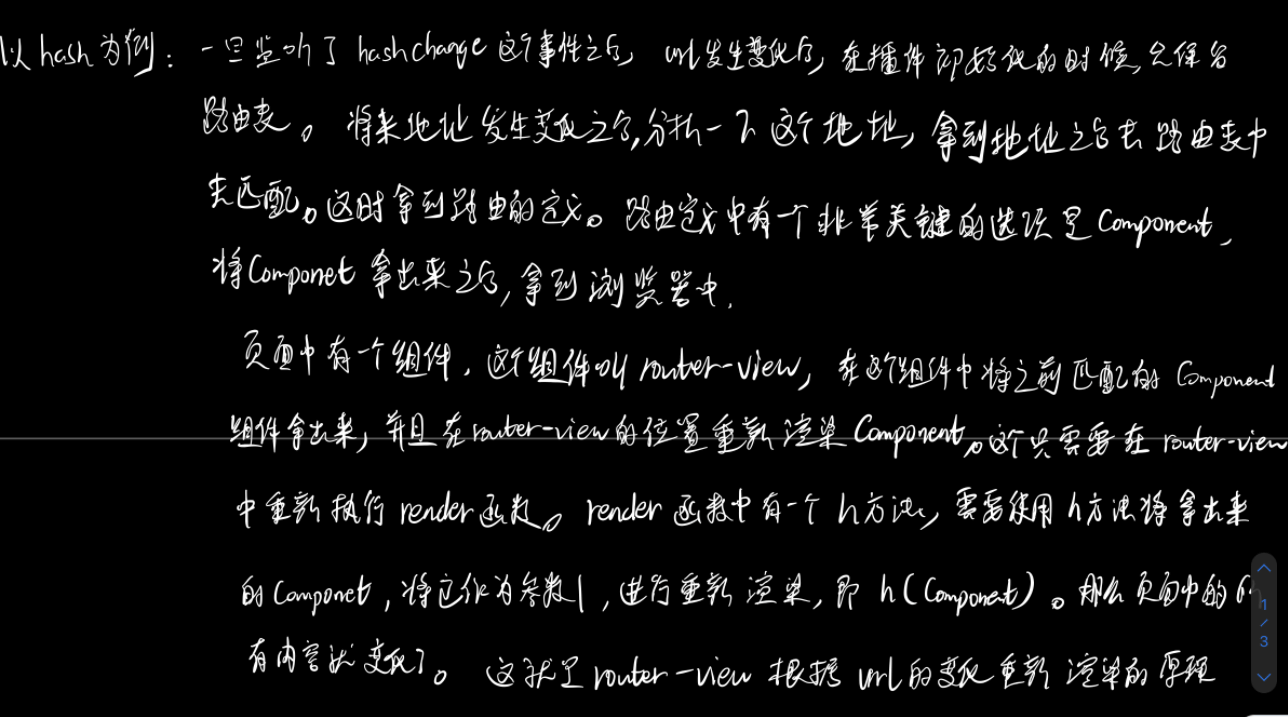 以hash为例：一旦监听了hashchange这个事件之后，url发生变化后，在插件初始化的时候，会保存
路由表。将来地址发生变化之后，分析一下这个地址，拿到地址之后去路由表中
去匹配。这时拿到路由的定义。路由定义中有一个非常关键的选项是Component，
将Componet拿出来之后，拿到浏览器中.
页面中有一个组件，这个组件叫router-view，在这个组件中将之前匹配的Component
组件拿出来，并且在router-view的位置重新渲染Component。这个只需要在router-view
中重新执行render函数。render函数中有一个h方法，需要使用h方法将拿出来
的Componet，将它作为参数1，进行重新渲染，即h(Component)。那么页面中的所
有内容就变化了。这就是router-view根据url的变化重新渲染的原理
1
/
3